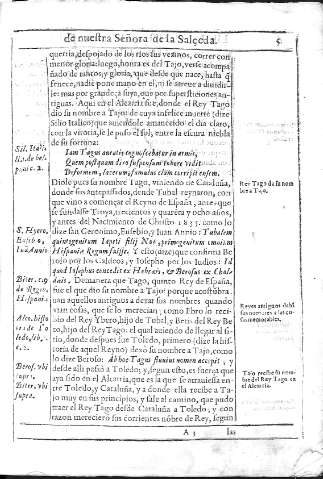 de nuestra Señora de la Salçeda. 5
querria, despojado de los rios sus vezinos, correr con
menor gloria: luego, honra es del Tajo, verse acompa
ñado de tantos, y gloria, que desde que nace, hasta q̃
fenece, nadie pone mano en el, ni se atreve a
mas por grande; a suya, que por supersticiones an-
tiguas. Aqui en el Alcarria fue, donde el Rey Tago
dio su nombre a Tajo; de cuya infelice muerte (dize
Silio Italico) que sucediole amaneciẽdo el dia claro,
con la vitoria, le puso el sol, entre la escura niebla
de su fortuna:
Iam Tagus auratis agnoscebatur in armis,
Quem postquam diro suspensum robore vidit
Deformem, lacerum, famulus clam corripit ensem.
Diole pues su nombre Tago, viniendo de Cataluña,
donde sus antepassados, desde Tubal reynaron, con
que vino a començar el Reyno de España, antes que
se fundasse Troya, trecientos y quarẽta y ocho años,
y antes del Nacimiento de Christo 1835. como lo
dize san Geronimo, Eusebio, y Iuan Annio: Tubalem
quintogenitum Iapeti filij Noe, primogenitum omnium
Hispaniæ Regum fuisse. Y esto (dize) que confirma Be
rosio por los Caldeos, y Iosepho por los Iudios: Id
quod Iosephus contendit ex Hebræis, & Berosus ex Chal
dæis. De manera que Tago, quinto Rey de España,
fue el que dio su nombre a Tajo: porque acostũbra-
uan aquellos antiguos a dexar sus nombres quando
vian cosas, que se lo merecian; como Ibro lo reci-
bio del Rey Ybero, hijo de Tubal, y Betis del Rey Be
to, hijo del Rey Tago: el qual aviendo de llegar al si-
tio, donde despues fue Toledo, primero (dize la his-
toria de aquel Reyno) dexò su nombre a Tajo, como
lo dize Beroso: Ab hoc Tagus fluuius nomen accepit, y
desde alli passò a Toledo; y, segun esto, es fuerça que
aya sido en el Alcarria, que es la que se atrauiessa en-
tre Toledo, y Cataluña, y a donde ella recibe a Ta-
jo muy en sus principios, y sale al camino, que pudo
traer el Rey Tago desde Cataluña a Toledo, y con
razon mereciera sus corrientes nõbre de Rey, segun
A 5 las
Sil. Italic.
lib. de bel.
punic. 2.
S. Hyero.
Euseb.
Iuã Annio
Biter. c. 9
de Regib.
Hispaniæ
Alco. histo
ria de To
ledo, lib. 1.
c. 2.
Berof. vbi
supra.
Biter. vbi
supra.
Rey Tago da su nom
bre a Tajo.
Reyes antiguos dabã
sus nombres a las co-
sas memorables.
Tajo recibe su nom
bre del Rey Tago en
el Alcarria.